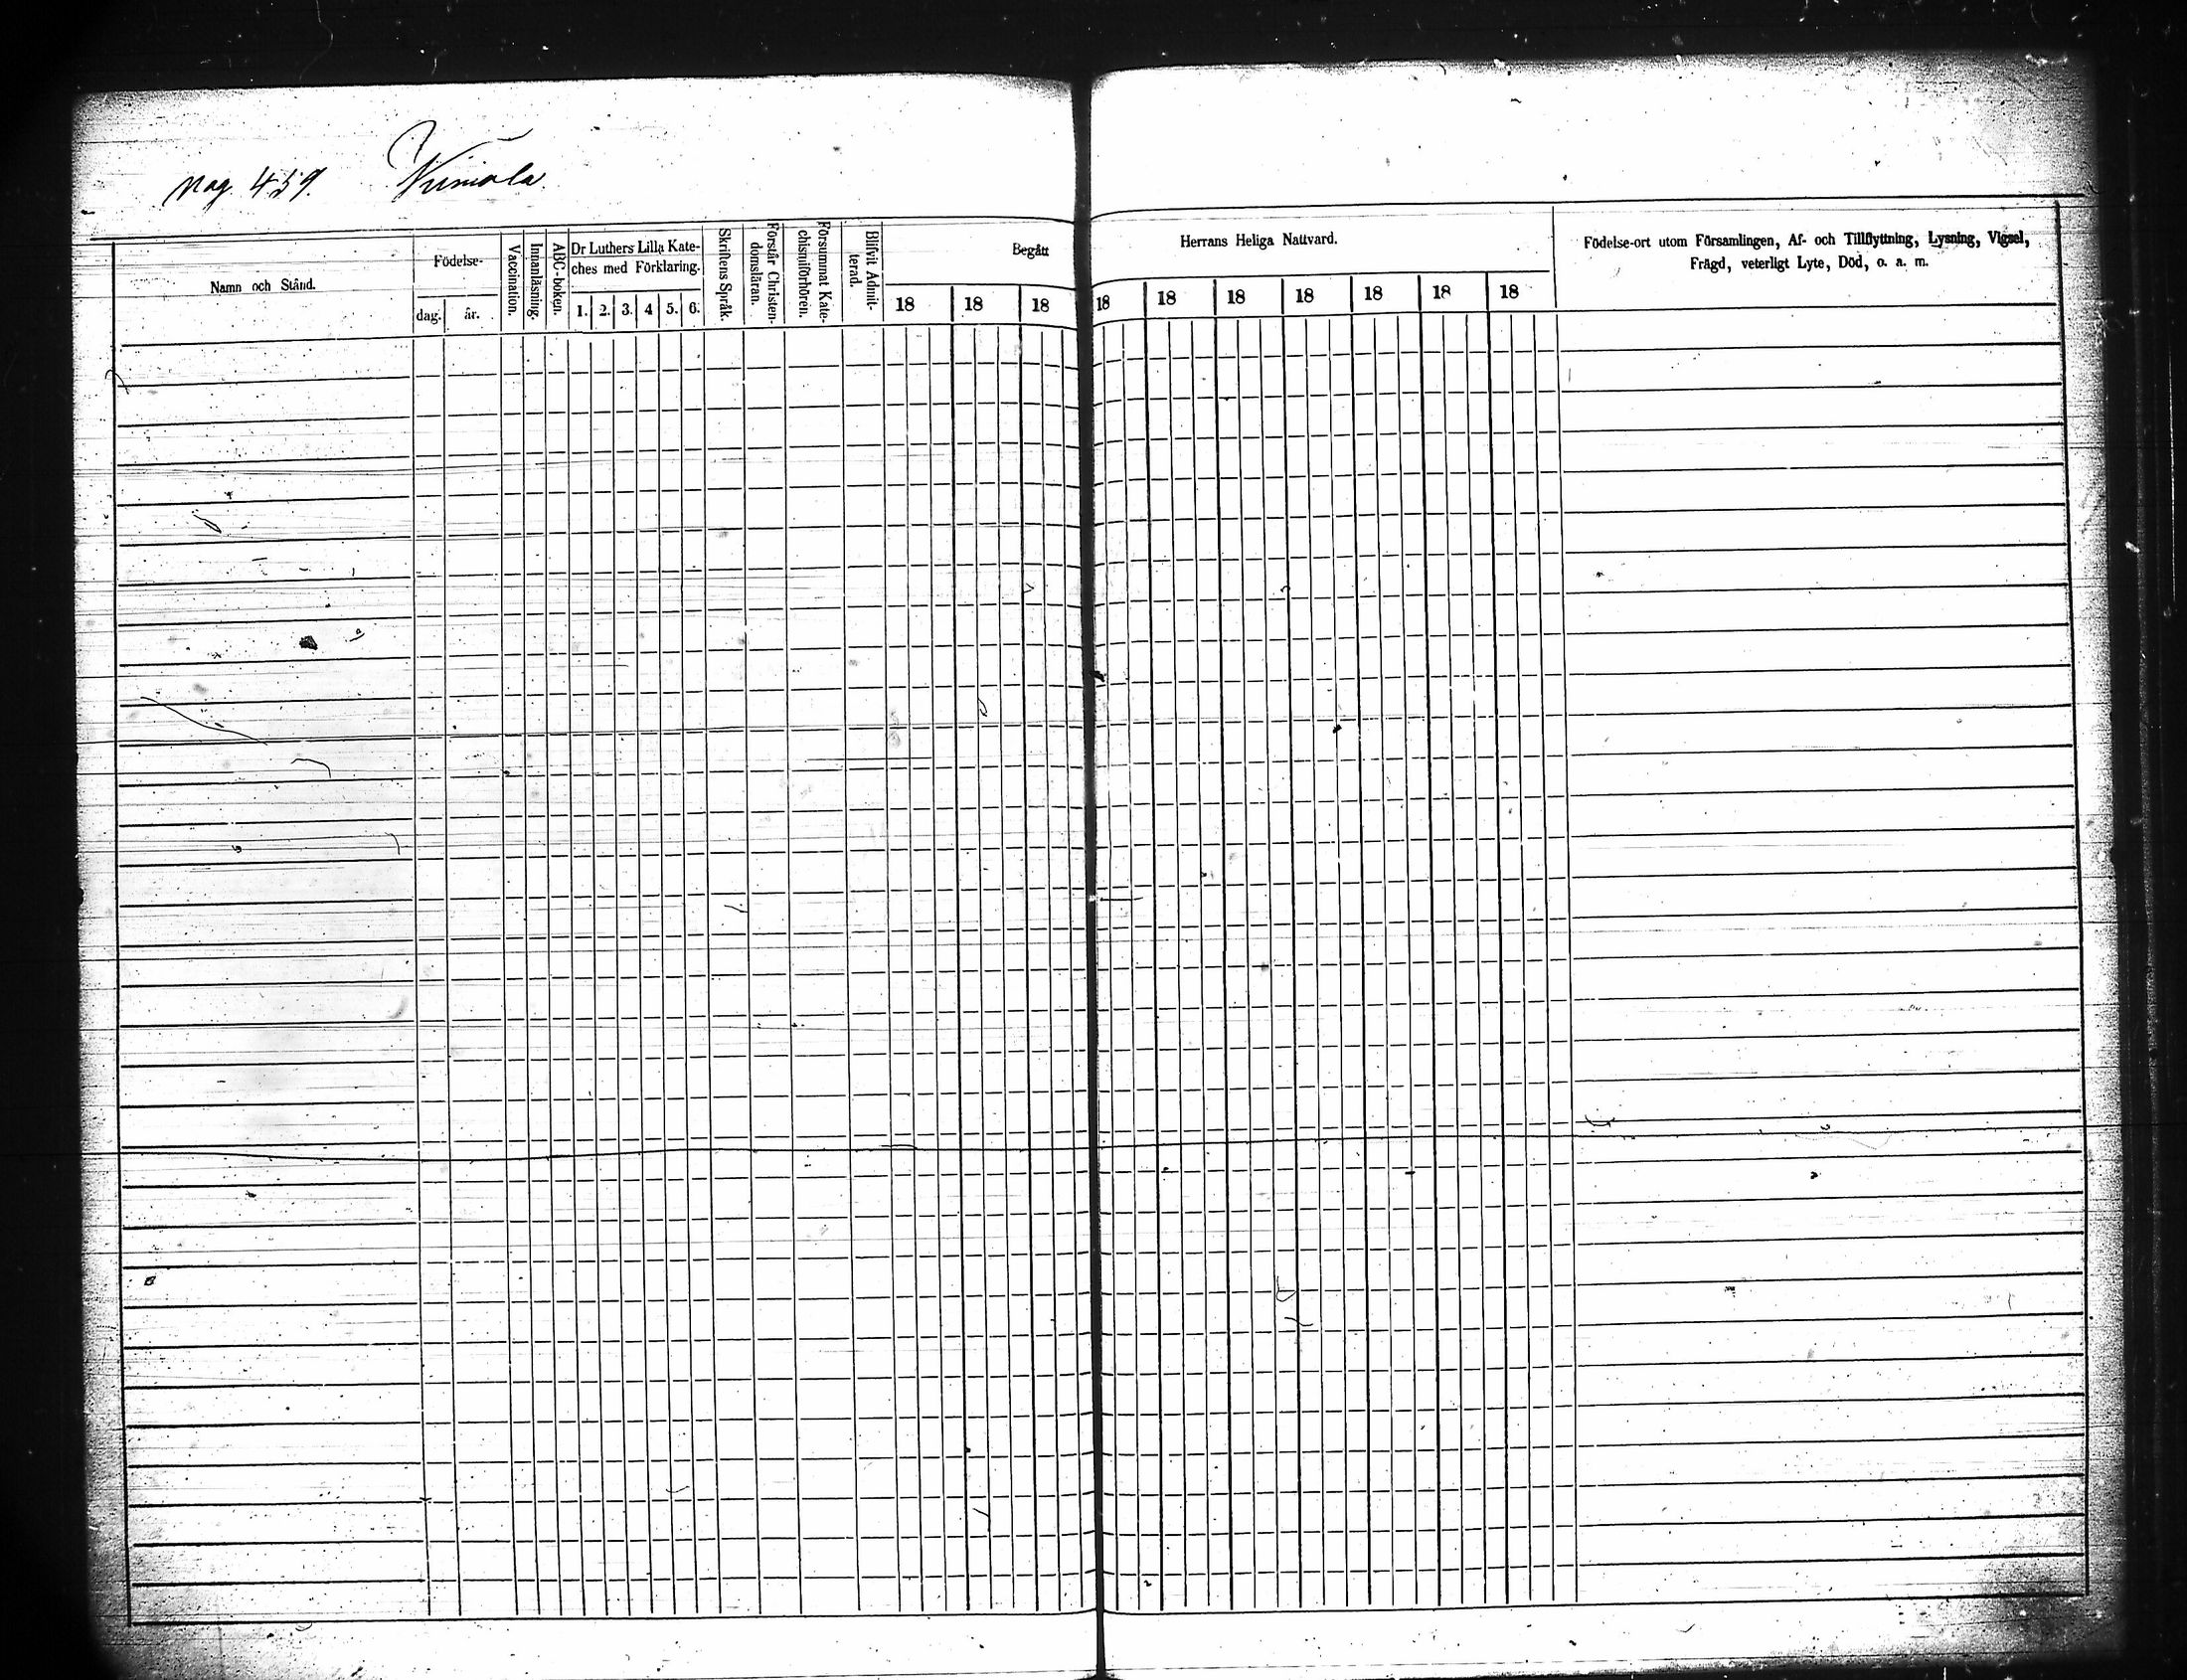 pag. 459. Viimola.
Namn och Stånd.
Födelse-
dag. år.
Vaccination.
Innanläsning.
ABC-boken.
Dr Luthers Lilla Kate-
ches med Förklaring.
1. 2. 3. 4 5. 6.
Skriftens Språk.
Förstår Christen-
domsläran.
Försummat Kate-
chismiförhören.
Blifvit Admit-
terad.
Begått Herrans Heliga Nattvard.
18 18 18 18 18 18 18 18 18 18
Födelse-ort utom Församlingen, Af- och Tillflyttning, Lysning, Vigsel,
Frägd, veterligt Lyte, Död, o. a. m.